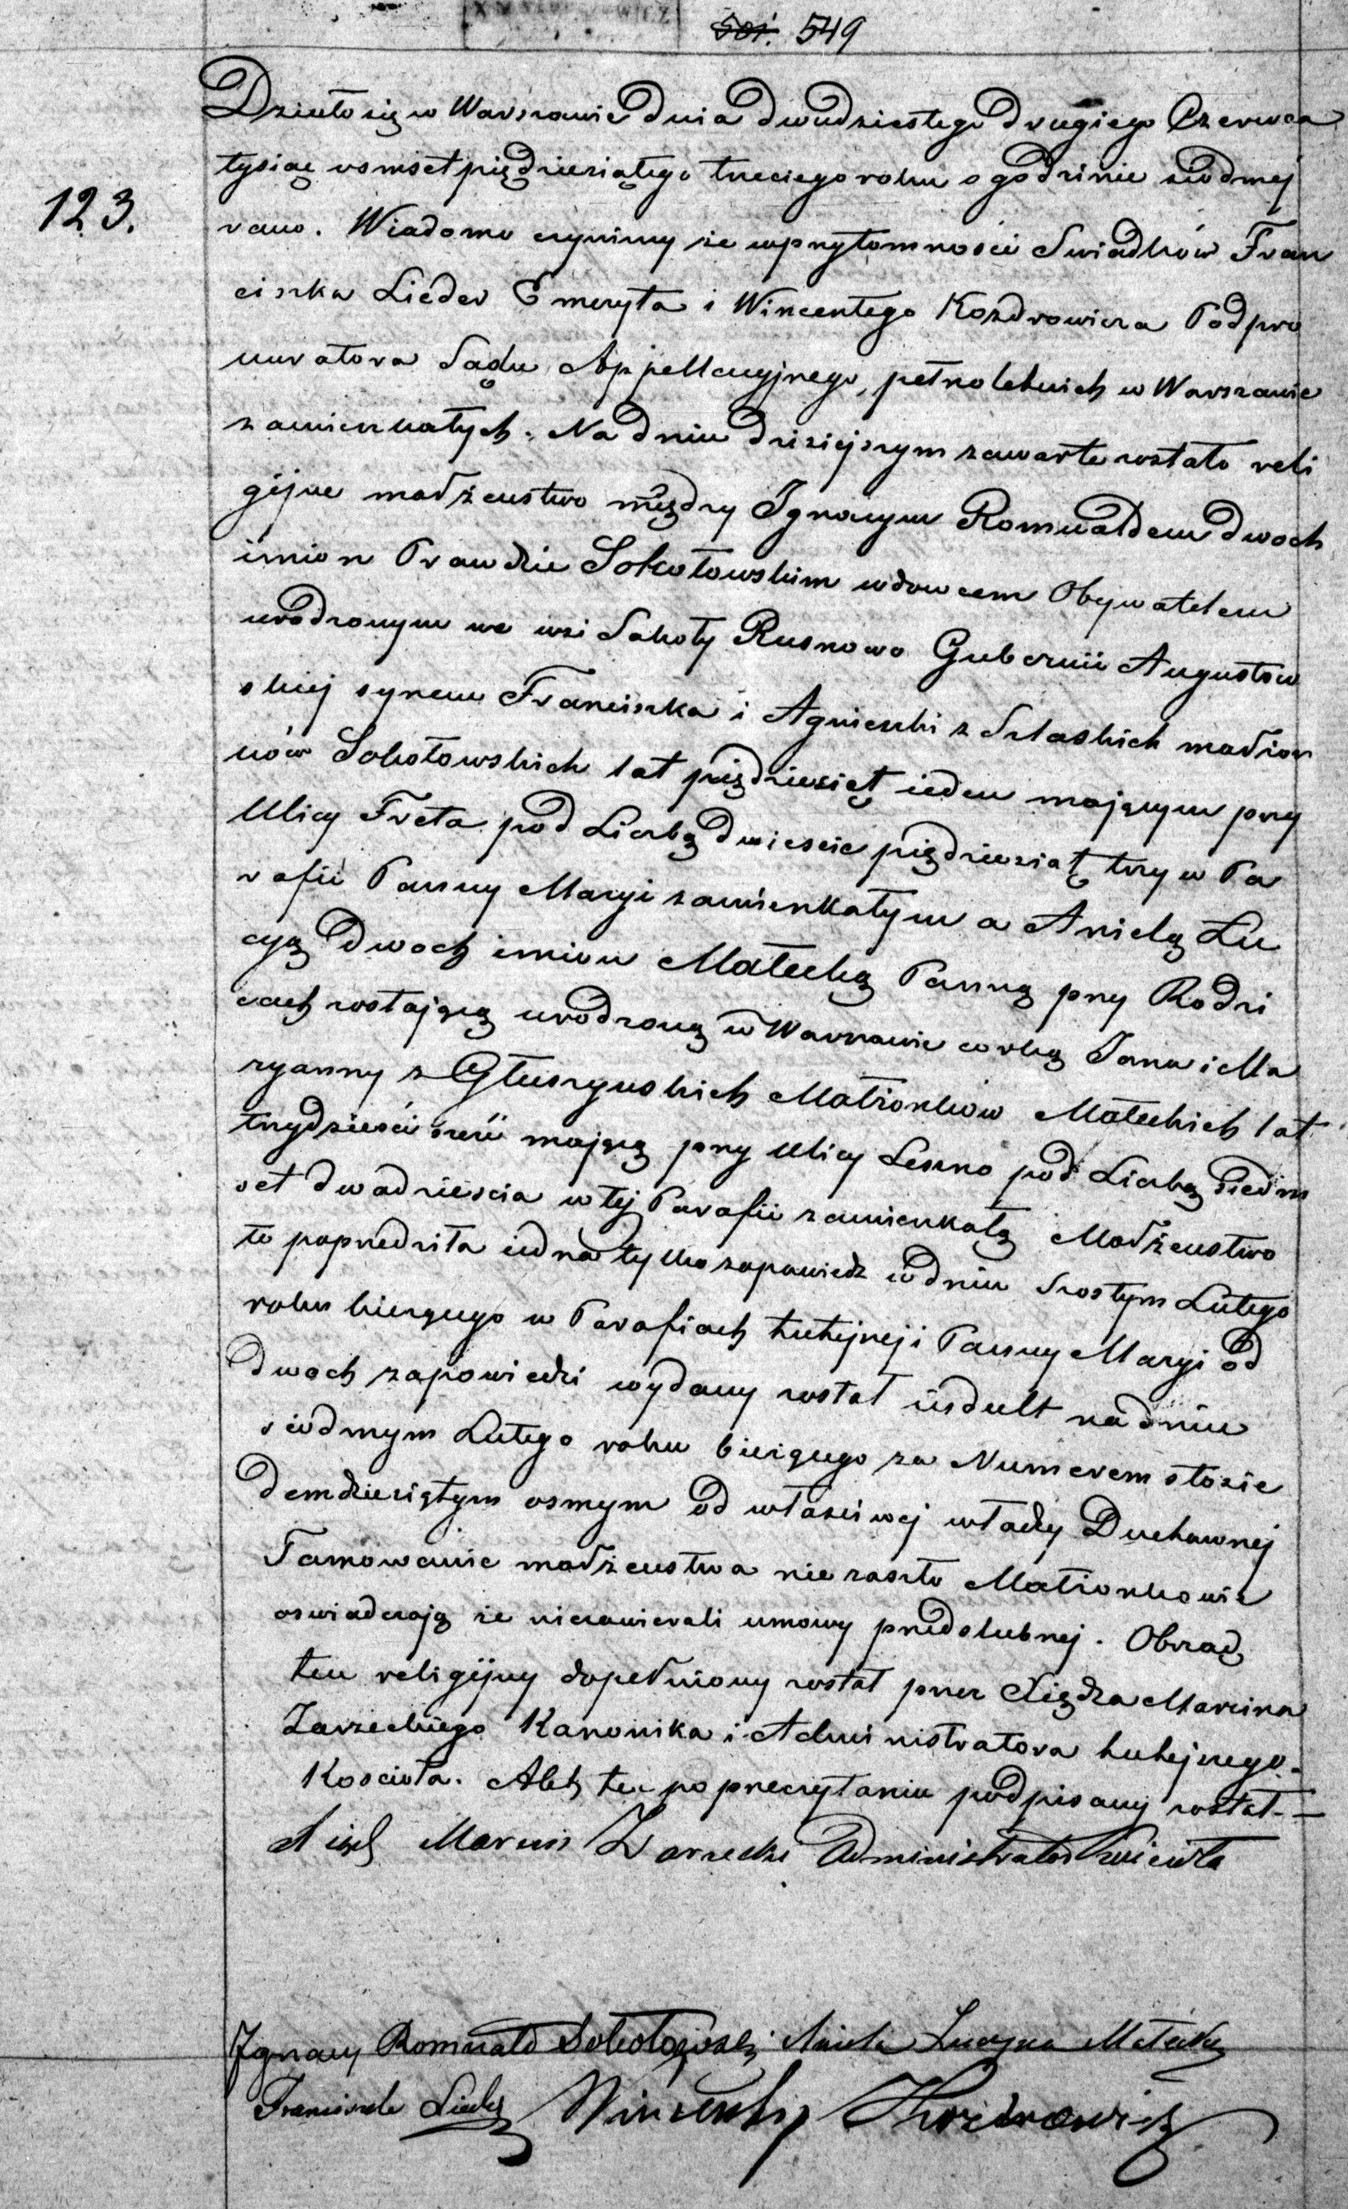 501. 549
123.
Działo się w Warszawie dnia dwudziestego drugiego Czerwca
tysiąc osmset pięćdziesiątego trzeciego roku o godzinie siodmej
rano. Wiadomo czynimy że w przytomności Swiadków Fran
ciszka Lieder Emeryta i Wincentego Kozdrowicza Podpro
kuratora Sądu Appellacyjnego, pełnoletnich w Warszawie
zamieszkałych. Na dniu dzisiejszym zawarte zostało reli
gijne małżeństwo między Ignacym Romualdem dwoch
imion Prawdzic Sokołowskim wdowcem Obywatelem
urodzonym we wsi Sokoły Rusnowo Gubernii Augustow
skiej synem Franciszka i Agnieszki z Szlaskich małżon
ków Sokołowskich lat pięćdziesiąt ieden mającym przy
Ulicy Freta pod Liczbą dwieście pięćdziesiąt trzy w Pa
rafii Panny Maryi zamieszkałym a Anielą Lu
cyą dwoch imion Małecką Panną przy Rodzi
cach zostającą urodzoną w Warszawie corką Jana i Ma
ryanny z Głuszyńskich Małżonków Małeckich lat
trzydzieści mającą przy Ulicy Leszno pod Liczbą siedm
set dwadzieścia w tej Parafii zamieszkałą Małżeństwo
to poprzedziła iedna tylko zapowiedź w dniu szostym Lutego
roku bieżącego w Parafiach tutejszej i Panny Maryi od
dwoch zapowiedzi wydany został indult na dniu
siodmym Lutego roku bieżącego za Numerem sto sie
demdziesiątym osmym od właściwej władzy Duchownej
Tamowanie małżeństwa nie zaszło Małżonkowie
oswiadczają że niezawierali umowy przedslubnej. Obrząd
ten religijny dopełniony został przez Xiędza Marcina
Zarzeckiego Kanonika i Administratora tutejszego
Kościoła. Akt ten po przeczytaniu podpisany został.
Xiądz Marcin Zarzecki Administrator Kościoła
Ignacy Romuald Sokołowski Aniela Lucyna Małecka
Franciszek Lieder Wincenty Kozdrowicz